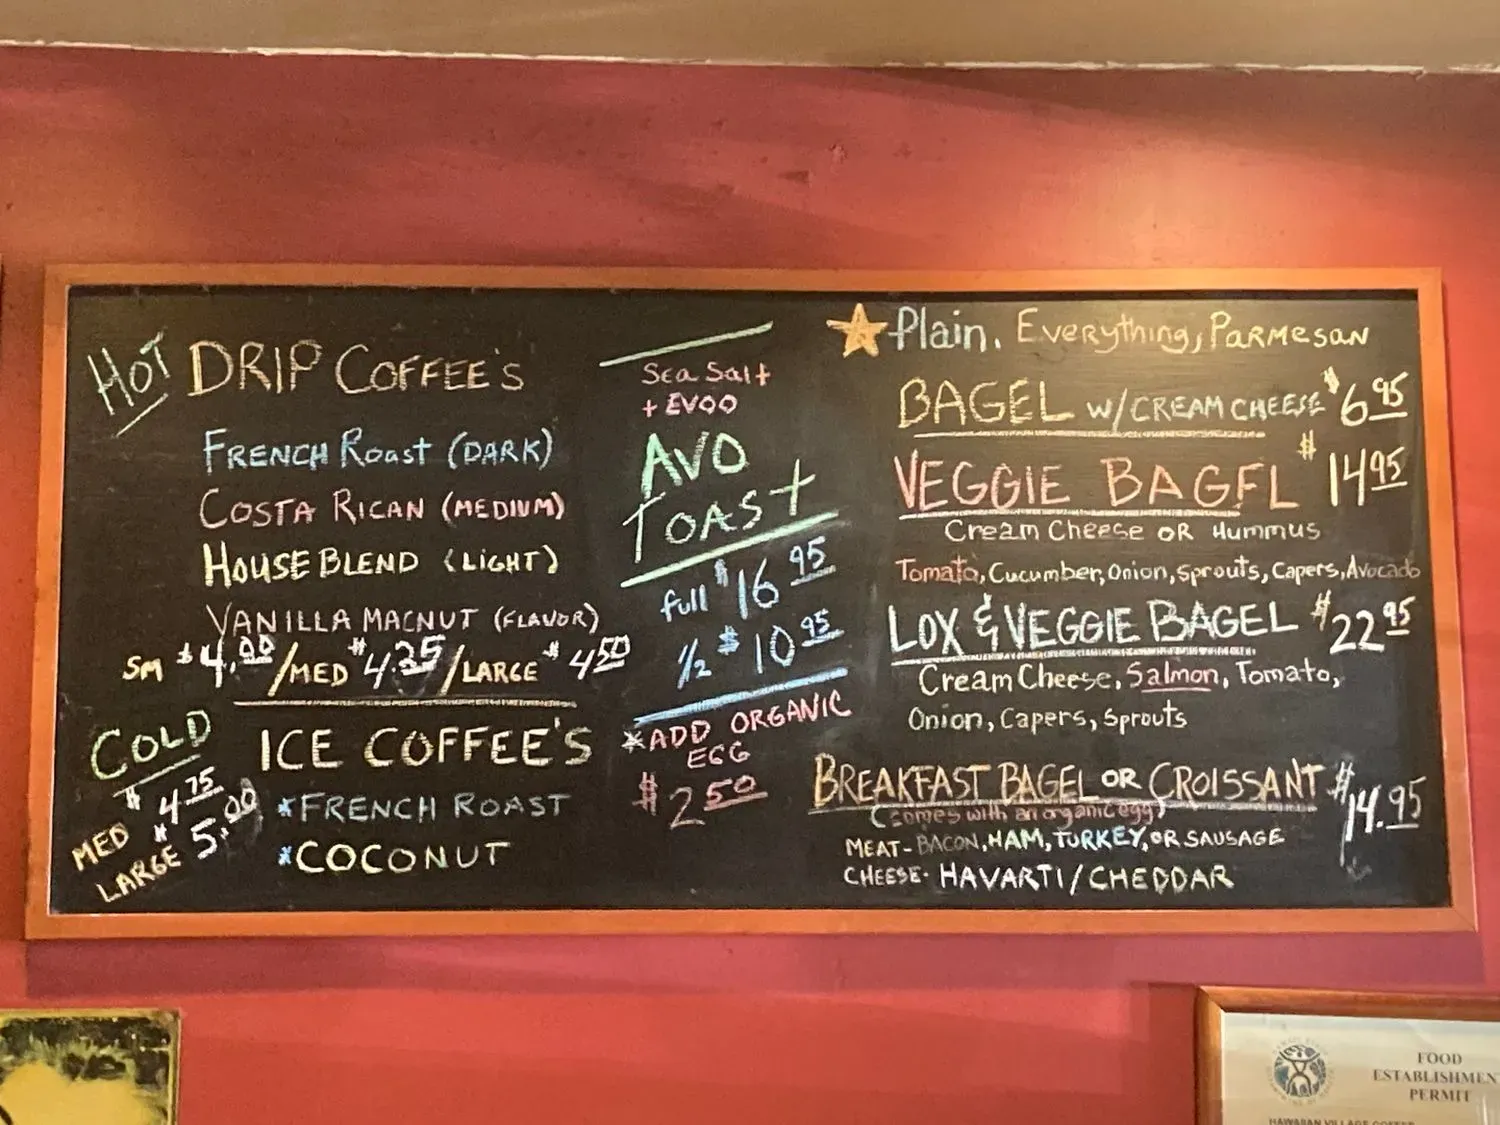 HOT DRIP COFFEE'S
FRENCH ROAST (DARK)
COSTA RICAN (MEDIUM)
HOUSE BLEND (LIGHT)
VANILLA MACNUT (FLAVOR)
SM $4.00/MED $4.25/LARGE $4.50
COLD
MED $4.75
LARGE $5.00
ICE COFFEE'S
*FRENCH ROAST
*COCONUT
Sea Salt
+ EVOO
AVO
TOAST
full $16.95
1/2 $10.95
*ADD ORGANIC
EGG
$2.50
Plain, Everything, Parmesan
BAGEL W/CREAM CHEESE $6.95
VEGGIE BAGEL $14.95
Cream Cheese OR Hummus
Tomato, Cucumber, Onion, Sprouts, Capers, Avocado
LOX & VEGGIE BAGEL $22.95
Cream Cheese, Salmon, Tomato,
Onion, Capers, Sprouts
BREAKFAST BAGEL OR CROISSANT $14.95
(comes with an organic egg)
MEAT- BACON, HAM, TURKEY, OR SAUSAGE
CHEESE- HAVARTI/CHEDDAR
FOOD
ESTABLISHMEN
PERMIT
HAWAIIAN VILLAGE COFFEE